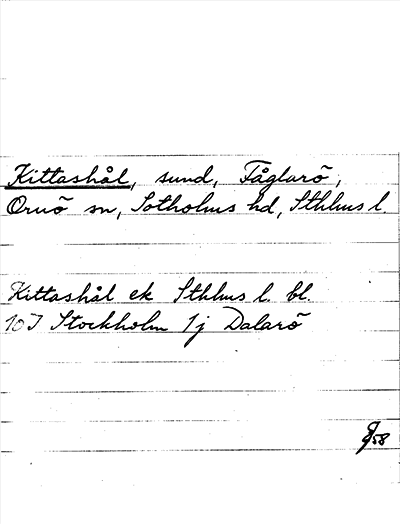 Kittashål, sund, Fåglarö,
Ornö sn, Sotholms hd, Sthlms l.
Kittashål ek Sthlms l. bl.
10J Stockholm 1j Dalarö
58